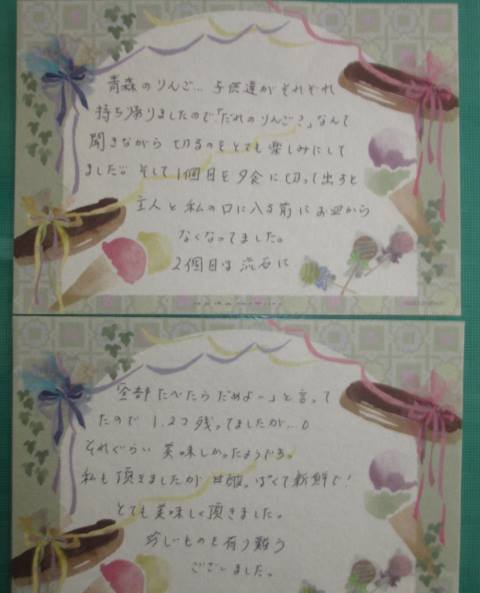 青森のりんご… 子供達がそれぞれ
持ち帰りましたので「だれのりんご？」なんて
聞きながら 切るのをとても楽しみにして
ました。そして1個目を夕食に切って出すと
主人と私の口に入る前にお皿から
なくなってました。
2個目は流石に
「全部たべたらだめよー」と言って
たので 1.2コ残ってましたが…。
それぐらい 美味しかったようです。
私も頂きましたが 甘酸っぱくて新鮮で！
とても美味しく頂きました。
珍しいものを有り難う
ございました。